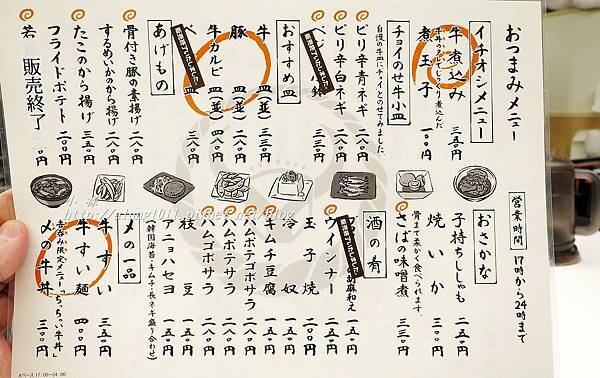 おつまみメニュー
イチオシメニュー
牛煮込み 三五〇円
牛スジのみでじっくり煮込んだ
煮玉子 一〇〇円
チョイのせ牛小皿
自慢の牛皿にチョイとのせてみました。
ピリ辛青ネギ 二八〇円
ピリ辛白ネギ 二八〇円
おすすめ皿
牛皿(並) 三三〇円
豚皿(並) 二八〇円
牛カルビ皿(並) 四八〇円
あげもの
骨付き豚の素揚げ 二八〇円
するめいかのから揚げ 三三〇円
たこのから揚げ 三五〇円
フライドポテト 二〇〇円
若
販売終了
〇円
小蓁
http://aling1011.pixnet.net/blog
営業時間 17時から24時まで
おさかな
子持ちししゃも 二五〇円
焼いか 三〇〇円
骨まで柔かく食べられます。
さばの味噌煮 三三〇円
酒の肴
胡麻和え 一五〇円
ウインナー 二〇〇円
玉子焼 二〇〇円
冷奴 一五〇円
キムチ豆腐 二〇〇円
ハムポテコボサラ 二八〇円
ハムポテサラ 二八〇円
ハムゴボサラ 二八〇円
枝豆 一五〇円
アニョハセヨ 一五〇円
(韓国海苔・キムチ・長ネギ盛り合わせ)
〆の一品
牛すい 三五〇円
牛すい麺 四〇〇円
吉呑み限定メニュー、ちっちゃい牛丼
〆の牛丼 三〇〇円
Aベース 17:00〜24:00